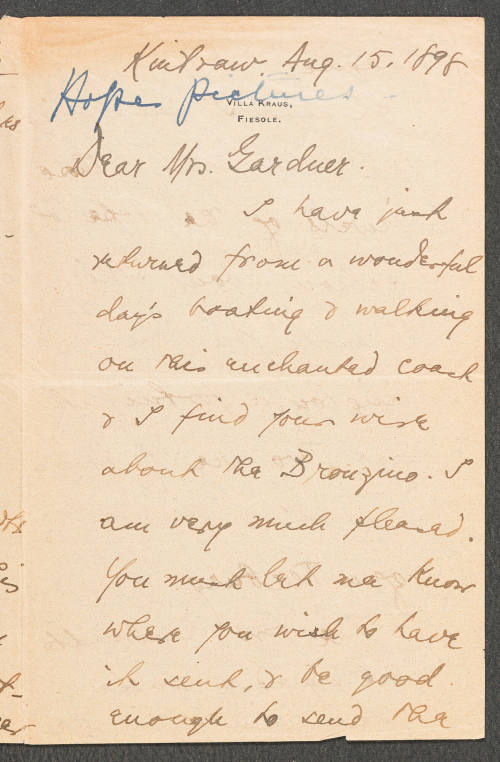 Kintraw. Aug. 15. 1898
Hope pictures -
VILLA KRAUS,
FIESOLE.
Dear Mrs. Gardner.
I have just
returned from a wonderful
day's boating & walking
on this enchanted coast
& I find your wire
about the Bronzino. I
am very much pleased.
You must let me know
where you wish to have
it sent, & be good
enough to send the